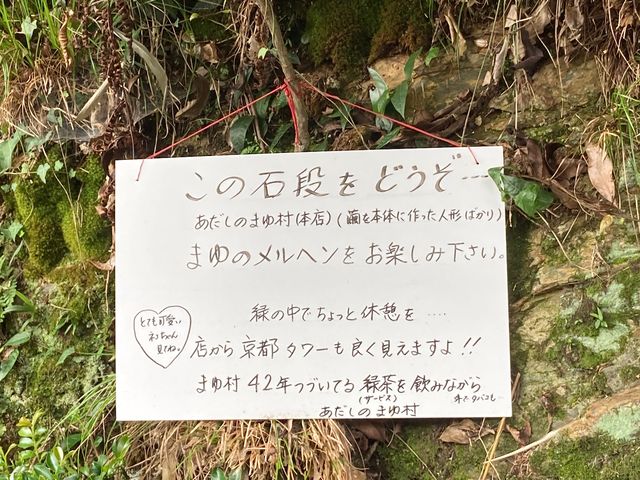 この石段をどうぞ…
あだしのまゆ村(本店)(繭を本体に作った人形ばかり)
まゆのメルヘンをお楽しみ下さい。
緑の中でちょっと休憩を‥‥
とても可愛い
ネコちゃん
見てね。
店から京都タワーも良く見えますよ!!
まゆ村42年つづいてる緑茶を飲みながら
(サービス)
あだしのまゆ村